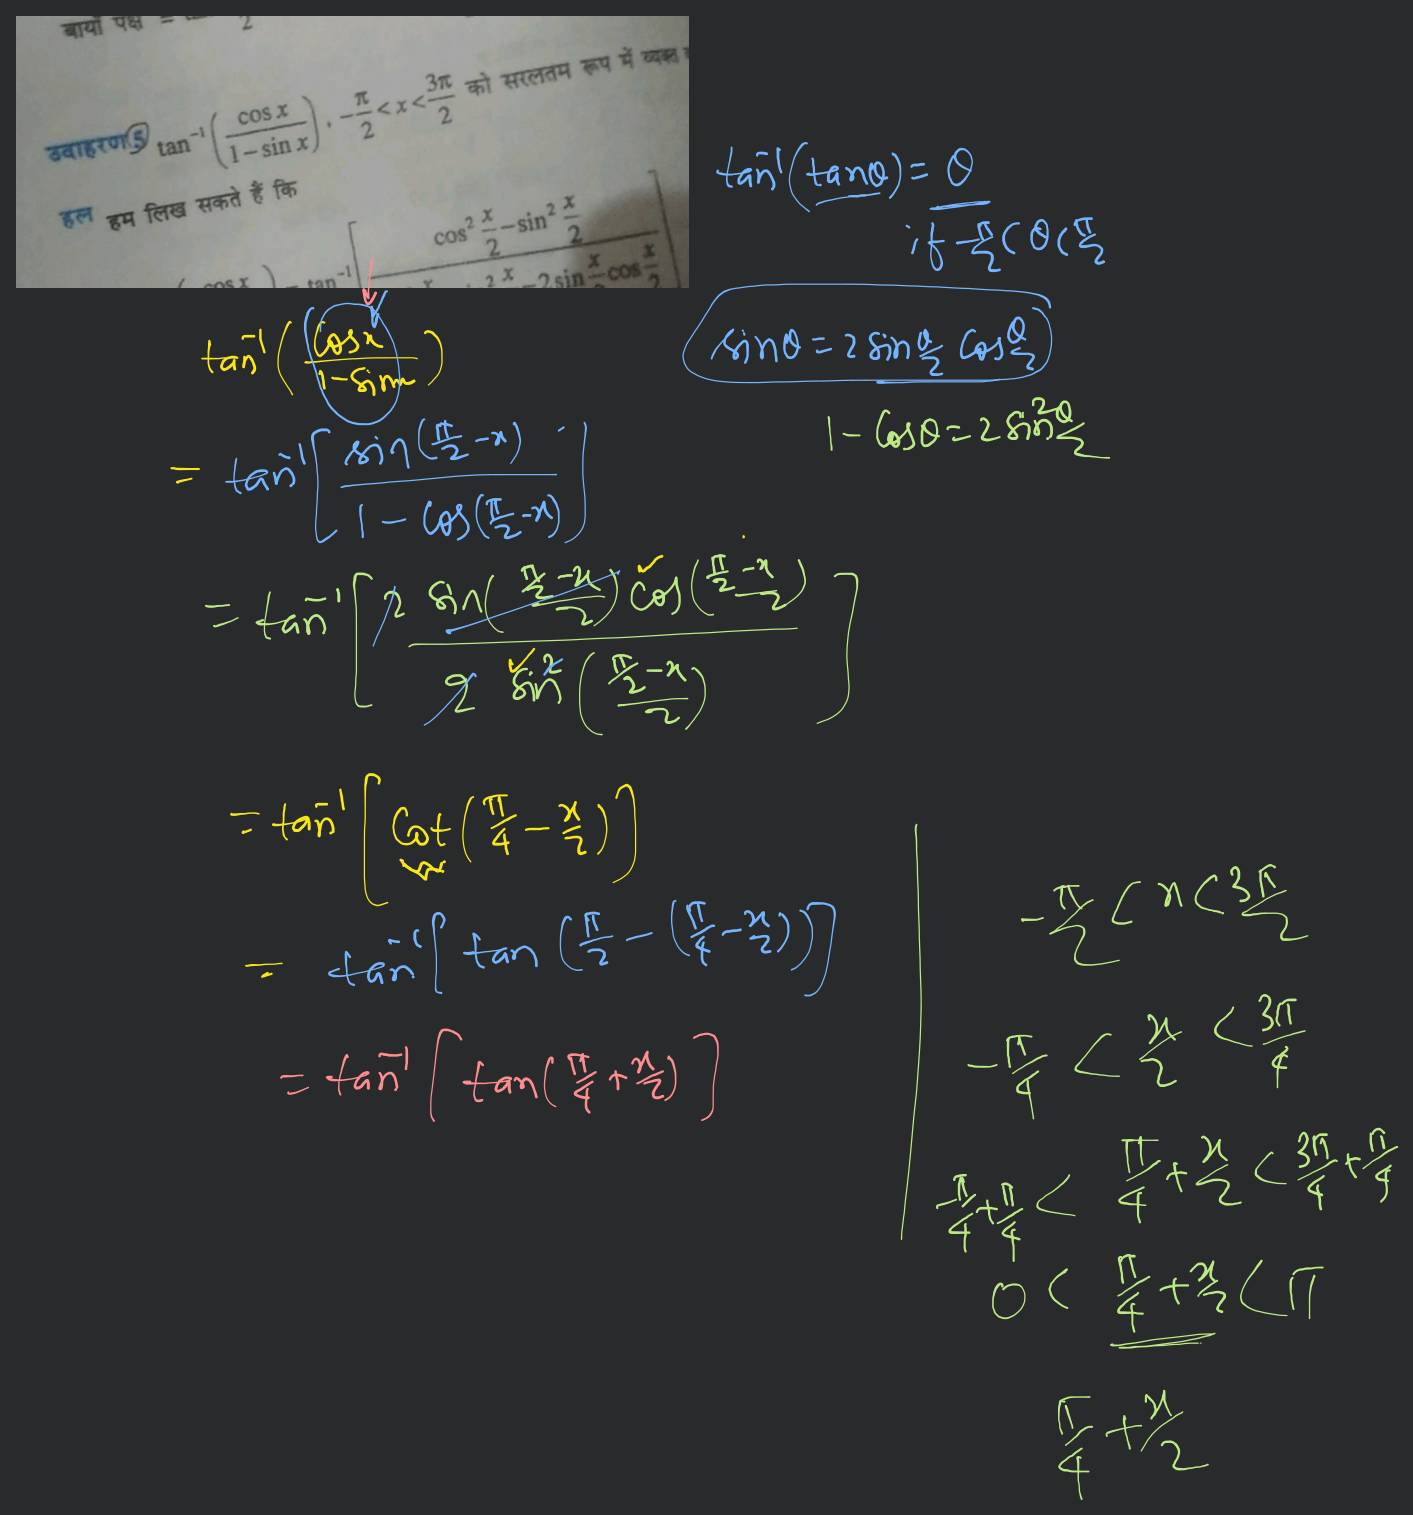 बायाँ पक्ष =
2
उदाहरण 5 tan⁻¹(cos x / 1 – sin x), –π/2 < x < 3π/2 को सरलतम रूप में व्यक्त
हल हम लिख सकते हैं कि
tan⁻¹[cos² x/2 – sin² x/2
cos x
x/2 – 2 sin x/2 cos x/2
tan⁻¹(tanθ) = θ
if -π/2 < θ < π/2
sinθ = 2 sin θ/2 cos θ/2
1 - cosθ = 2 sin² θ/2
tan⁻¹(cos x / 1 - sin x)
= tan⁻¹[sin(π/2 - x) / 1 - cos(π/2 - x)]
= tan⁻¹[2 sin((π/2 - x)/2) cos((π/2 - x)/2) / 2 sin²((π/2 - x)/2)]
= tan⁻¹[cot(π/4 - x/2)]
= tan⁻¹[tan(π/2 - (π/4 - x/2))]
= tan⁻¹[tan(π/4 + x/2)]
-π/2 < x < 3π/2
-π/4 < x/2 < 3π/4
-π/4 + π/4 < π/4 + x/2 < 3π/4 + π/4
0 < π/4 + x/2 < π
π/4 + x/2